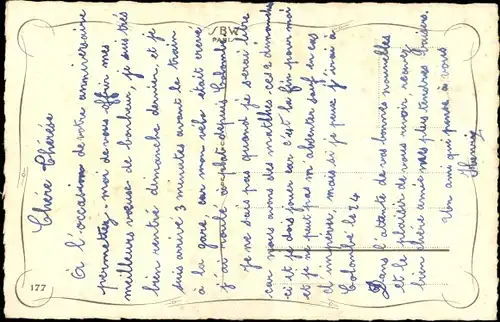 SBW
PARIS
Chère Thérèse
à l'occasion de votre anniversaire
permettez-moi de vous offrir mes
meilleurs vœux de bonheur, je suis très
bien rentré dimanche dernier, et je
suis arrivé 3 minutes avant le train
à la gare, car mon vélo était crevé
j'ai roulé depuis Colombé
Je ne sais pas quand je serai libre
car nous avons des matches ces 2 dimanches
ci et je dois jouer car c'est la fin pour moi
et je ne peut pas m'absenter sauf en cas
d'impréver, mais si je peux j'irai à
Colombé le 24
Dans l'attente de vos bonnes nouvelles
et le plaisir de vous revoir, recevez
bien chère amie mes plus tendres
Un ami qui pense à vous
177